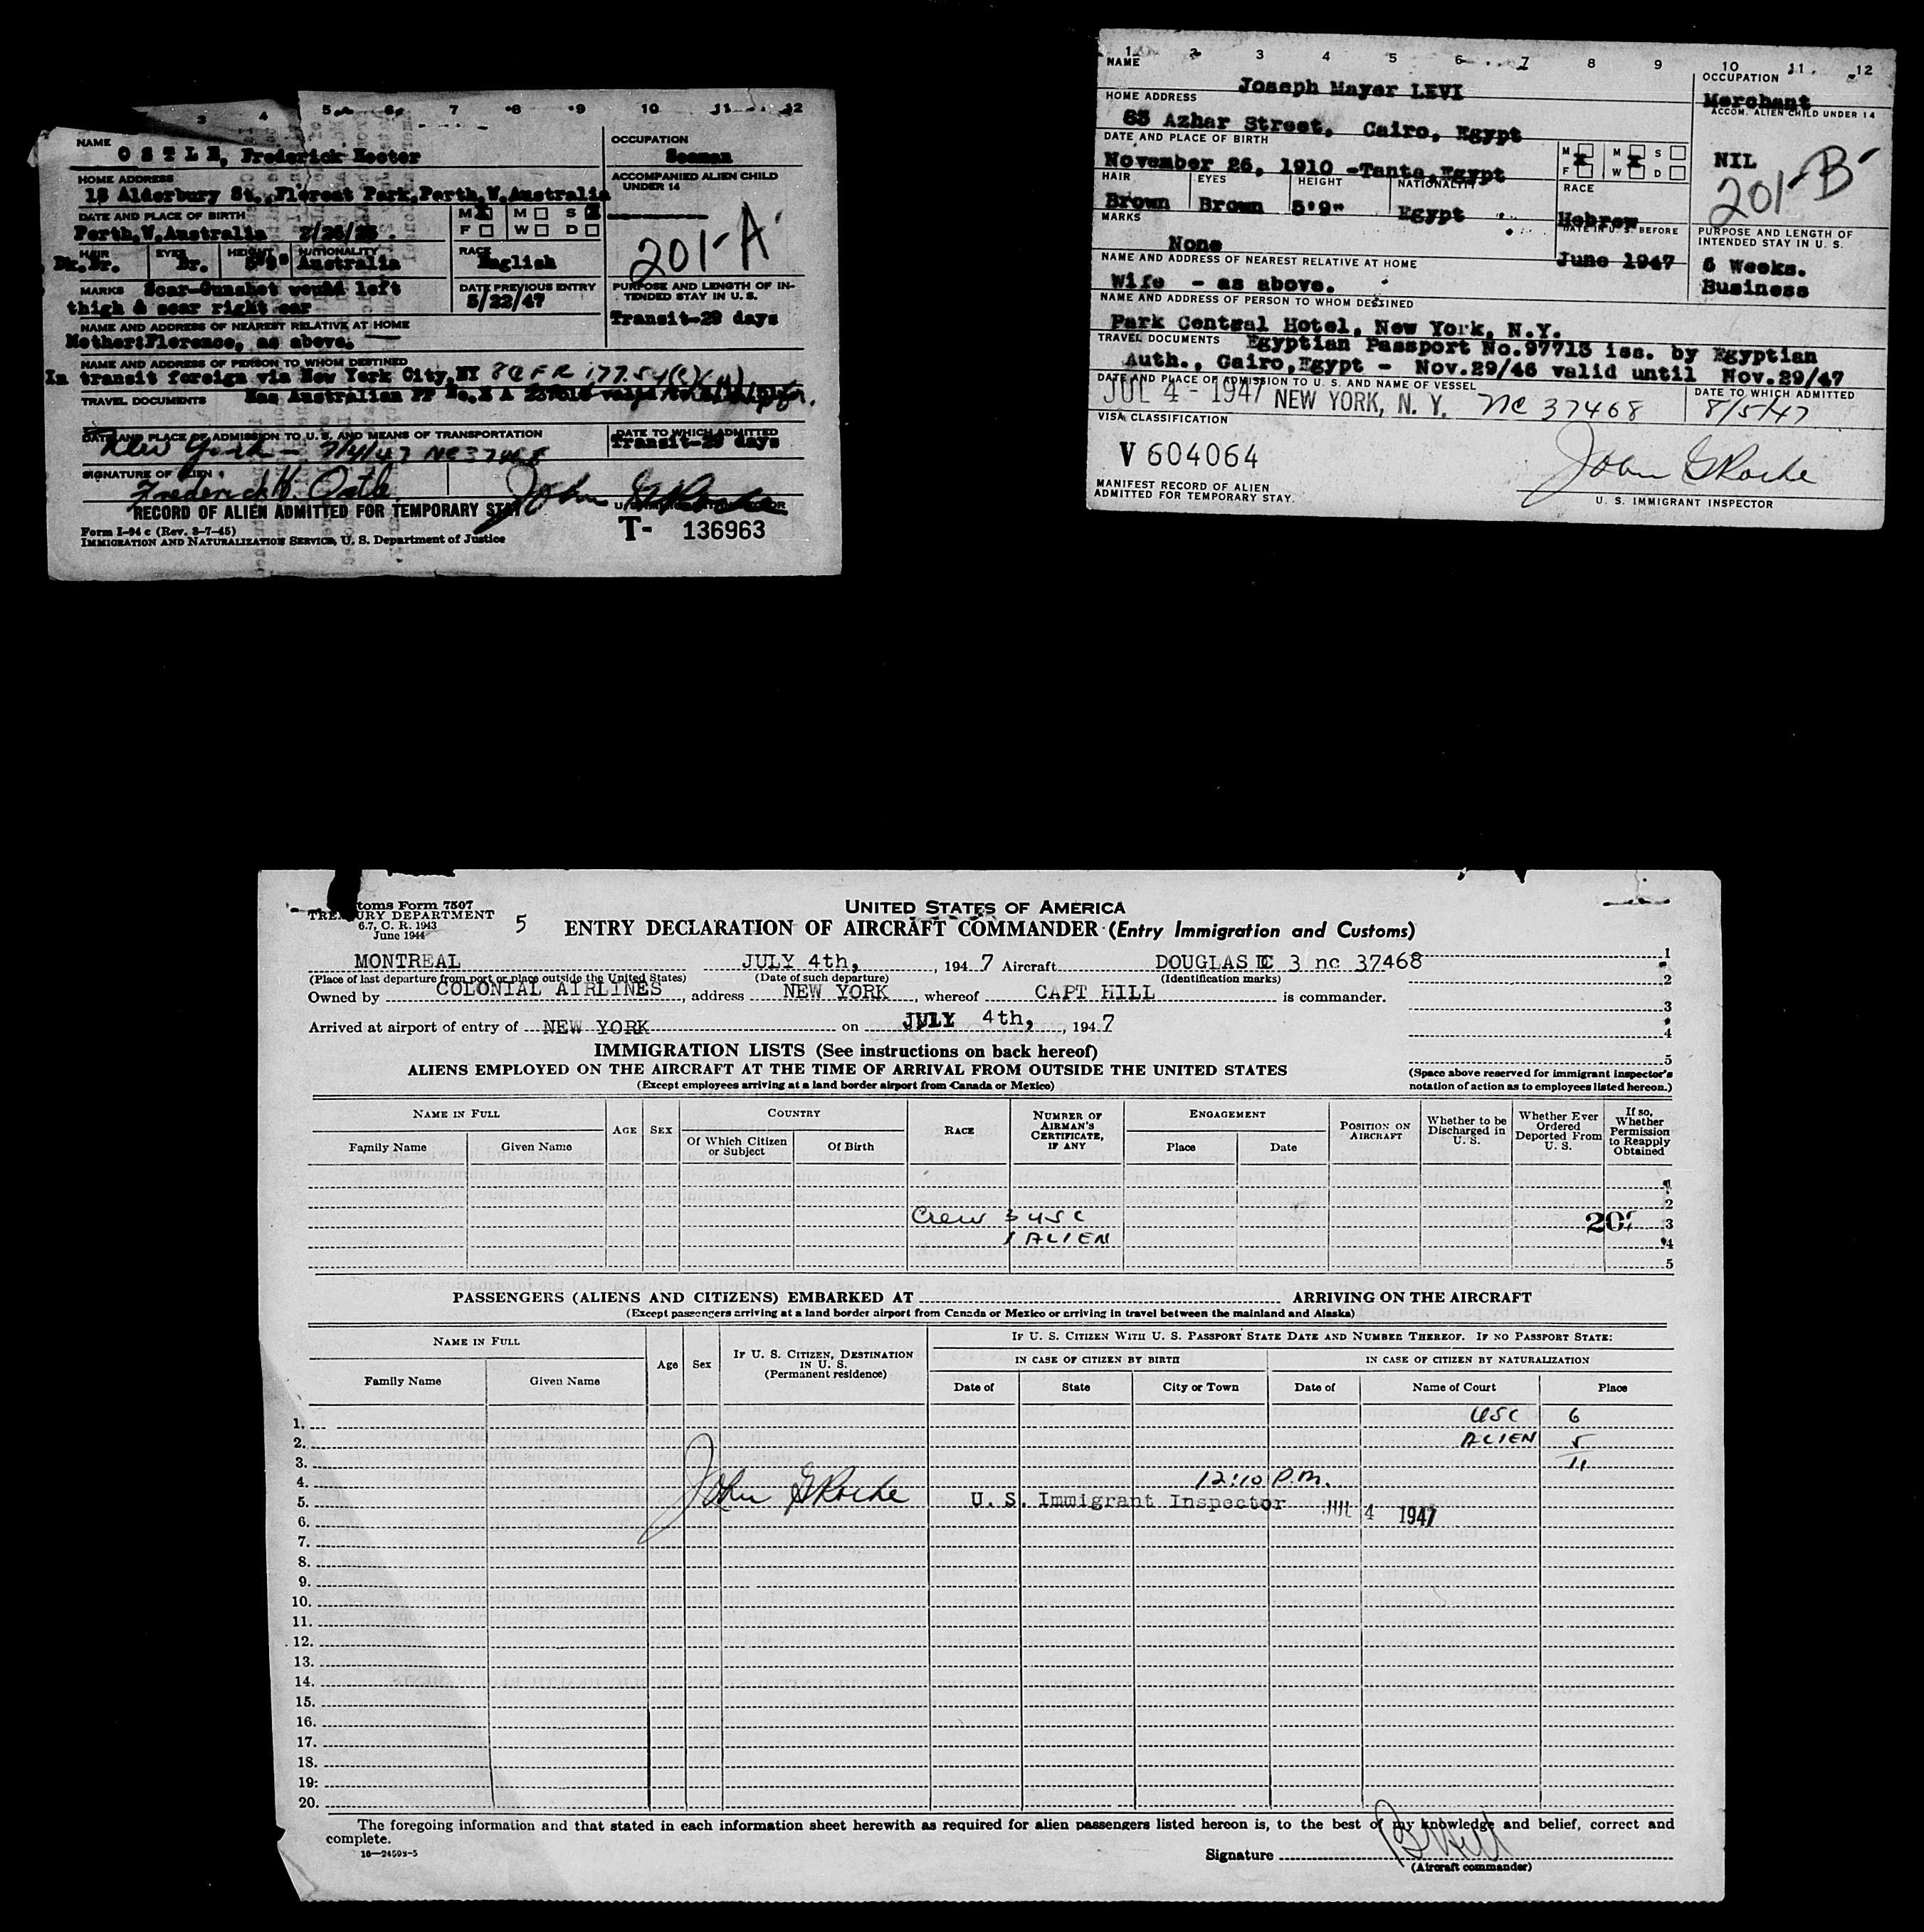 3 4 5 6 7 8 9 10 11 12
NAME
O S T L E, Frederick Hector
OCCUPATION
Seaman
HOME ADDRESS
Alderbury St., Floreat Park, Perth, W. Australia
ACCOMPANIED ALIEN CHILD
UNDER 14
DATE AND PLACE OF BIRTH
Perth, W. Australia
M F
M S
W D
201-A
HAIR EYES HEIGHT NATIONALITY
Dk. Br. Br. Australia
RACE
English
MARKS Scar-Gunshot wound left
thigh & scar right ear
DATE PREVIOUS ENTRY
5/22/47
PURPOSE AND LENGTH OF IN-
TENDED STAY IN U. S.
Transit-29 days
NAME AND ADDRESS OF NEAREST RELATIVE AT HOME
Mother:Florence, as above.
NAME AND ADDRESS OF PERSON TO WHOM DESTINED
In transit foreign via New York City, NY 8 CFR 177.54
TRAVEL DOCUMENTS Has Australian PP No.
DATE AND PLACE OF ADMISSION TO U. S. AND MEANS OF TRANSPORTATION
New York - 7/4/47 NC 37468
DATE TO WHICH ADMITTED
Transit-29 days
SIGNATURE OF ALIEN
Frederick H. Ostle
John G Roche
RECORD OF ALIEN ADMITTED FOR TEMPORARY STAY
Form I-94 c (Rev. 3-7-45)
IMMIGRATION AND NATURALIZATION SERVICE, U. S. Department of Justice
T- 136963
1 2 3 4 5 6 7 8 9 10 11 12
NAME
Joseph Mayer LEVI
OCCUPATION
Merchant
HOME ADDRESS
83 Azhar Street, Cairo, Egypt
ACCOM. ALIEN CHILD UNDER 14
NIL
DATE AND PLACE OF BIRTH
November 26, 1910 -Tanta, Egypt
M F
M S
W D
201-B
HAIR EYES HEIGHT NATIONALITY RACE
Brown Brown 5'9" Egypt Hebrew
MARKS
None
DATE IN U. S. BEFORE
June 1947
PURPOSE AND LENGTH OF
INTENDED STAY IN U. S.
6 Weeks.
Business
NAME AND ADDRESS OF NEAREST RELATIVE AT HOME
Wife - as above.
NAME AND ADDRESS OF PERSON TO WHOM DESTINED
Park Central Hotel, New York, N.Y.
TRAVEL DOCUMENTS Egyptian Passport No.97713 iss. by Egyptian
Auth., Cairo, Egypt - Nov.29/46 valid until Nov.29/47
DATE AND PLACE OF ADMISSION TO U. S. AND NAME OF VESSEL
JUL 4 - 1947 NEW YORK, N. Y. NC 37468
DATE TO WHICH ADMITTED
8/5/47
VISA CLASSIFICATION
V 604064
John G Roche
MANIFEST RECORD OF ALIEN
ADMITTED FOR TEMPORARY STAY.
U. S. IMMIGRANT INSPECTOR
toms Form 7507
TREASURY DEPARTMENT
6.7, C. R. 1943
June 1944
5
UNITED STATES OF AMERICA
ENTRY DECLARATION OF AIRCRAFT COMMANDER (Entry Immigration and Customs)
MONTREAL JULY 4th, , 1947 Aircraft DOUGLAS DC 3 nc 37468
(Place of last departure from port or place outside the United States) (Date of such departure) (Identification marks)
Owned by COLONIAL AIRLINES, address NEW YORK, whereof CAPT HILL is commander.
Arrived at airport of entry of NEW YORK on JULY 4th, , 1947
1
2
3
4
5
(Space above reserved for immigrant inspector's
notation of action as to employees listed hereon.)
IMMIGRATION LISTS (See instructions on back hereof)
ALIENS EMPLOYED ON THE AIRCRAFT AT THE TIME OF ARRIVAL FROM OUTSIDE THE UNITED STATES
(Except employees arriving at a land border airport from Canada or Mexico)
NAME IN FULL
Family Name Given Name
AGE SEX
COUNTRY
Of Which Citizen or Subject Of Birth
RACE
NUMBER OF AIRMAN'S CERTIFICATE, IF ANY
ENGAGEMENT
Place Date
POSITION ON AIRCRAFT
Whether to be Discharged in U. S.
Whether Ever Ordered Deported From U. S.
If so, Whether Permission to Reapply Obtained
1
2
Crew 3 USC 3
1 ALIEN 4
5
PASSENGERS (ALIENS AND CITIZENS) EMBARKED AT ARRIVING ON THE AIRCRAFT
(Except passengers arriving at a land border airport from Canada or Mexico or arriving in travel between the mainland and Alaska)
NAME IN FULL
Family Name Given Name
Age Sex
IF U. S. CITIZEN, DESTINATION IN U. S.
(Permanent residence)
IF U. S. CITIZEN WITH U. S. PASSPORT STATE DATE AND NUMBER THEREOF. IF NO PASSPORT STATE:
IN CASE OF CITIZEN BY BIRTH IN CASE OF CITIZEN BY NATURALIZATION
Date of State City or Town Date of Name of Court Place
1. USC 6
2. ALIEN 5
3. 11
4. 12:10 P.M.
5. John G Roche U. S. Immigrant Inspector JUL 4 1947
6.
7.
8.
9.
10.
11.
12.
13.
14.
15.
16.
17.
18.
19.
20.
The foregoing information and that stated in each information sheet herewith as required for alien passengers listed hereon is, to the best of my knowledge and belief, correct and
complete.
16—24593-5
Signature B Hill
(Aircraft commander)